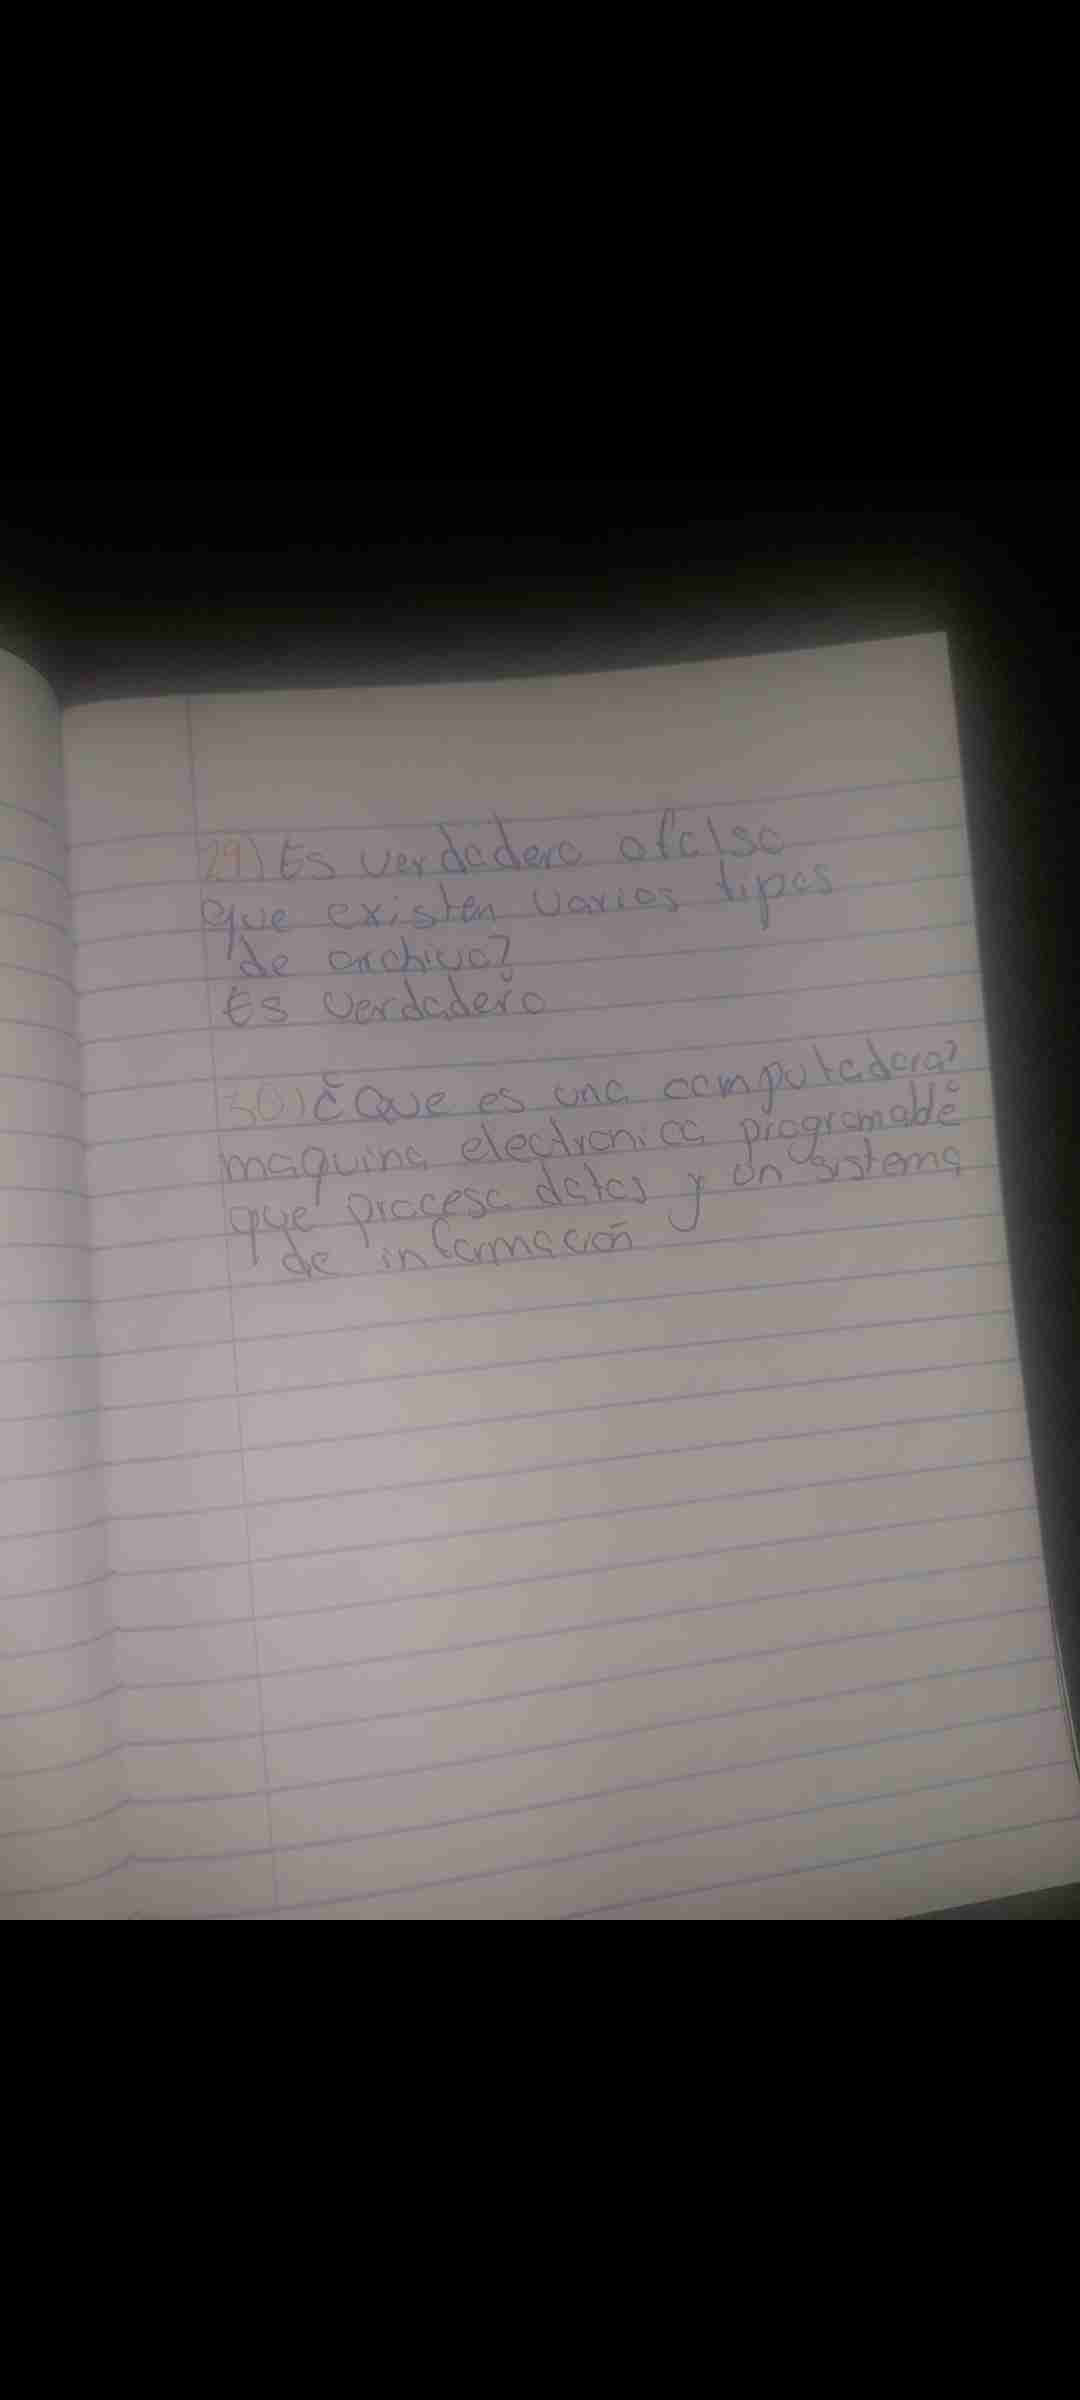 29) Es verdadero o falso
que existen varios tipos
de archivo?
Es verdadero
30) ¿Que es una computadora?
maquina electronica programable
que procesa datos y un sistema
de información